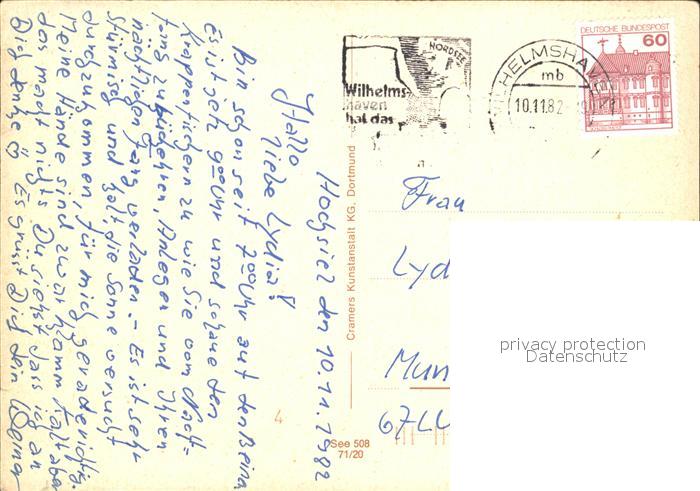 Hooksiel den 10.11.1982
Hallo
liebe Lydia!
Bin schon seit 7 00 Uhr auf den Beinen
Es ist jetz 9 00 Uhr und schaue den
Krappenfischern zu wie Sie vom Nacht-
fang zurückkehren, Anlegen und Ihren
nächtlichen Fang verladen. - Es ist sehr
Stürmisch und kalt, die Sonne versucht
durchzukommen, für mich gerade richtig.
Meine Hände sind zwar klamm kalt aber
das macht nichts Du siehst dass ich an
Dich denke Es grüsst Dich dein Werner
NORDSEE
Wilhelms-
haven
hat das
WILHELMSHAVEN
mb
10.11.82
DEUTSCHE BUNDESPOST
60
Frau
Lyd
Mun
67LL
Cramers Kunstanstalt KG, Dortmund
See 508
71/20
4
privacy protection
Datenschutz